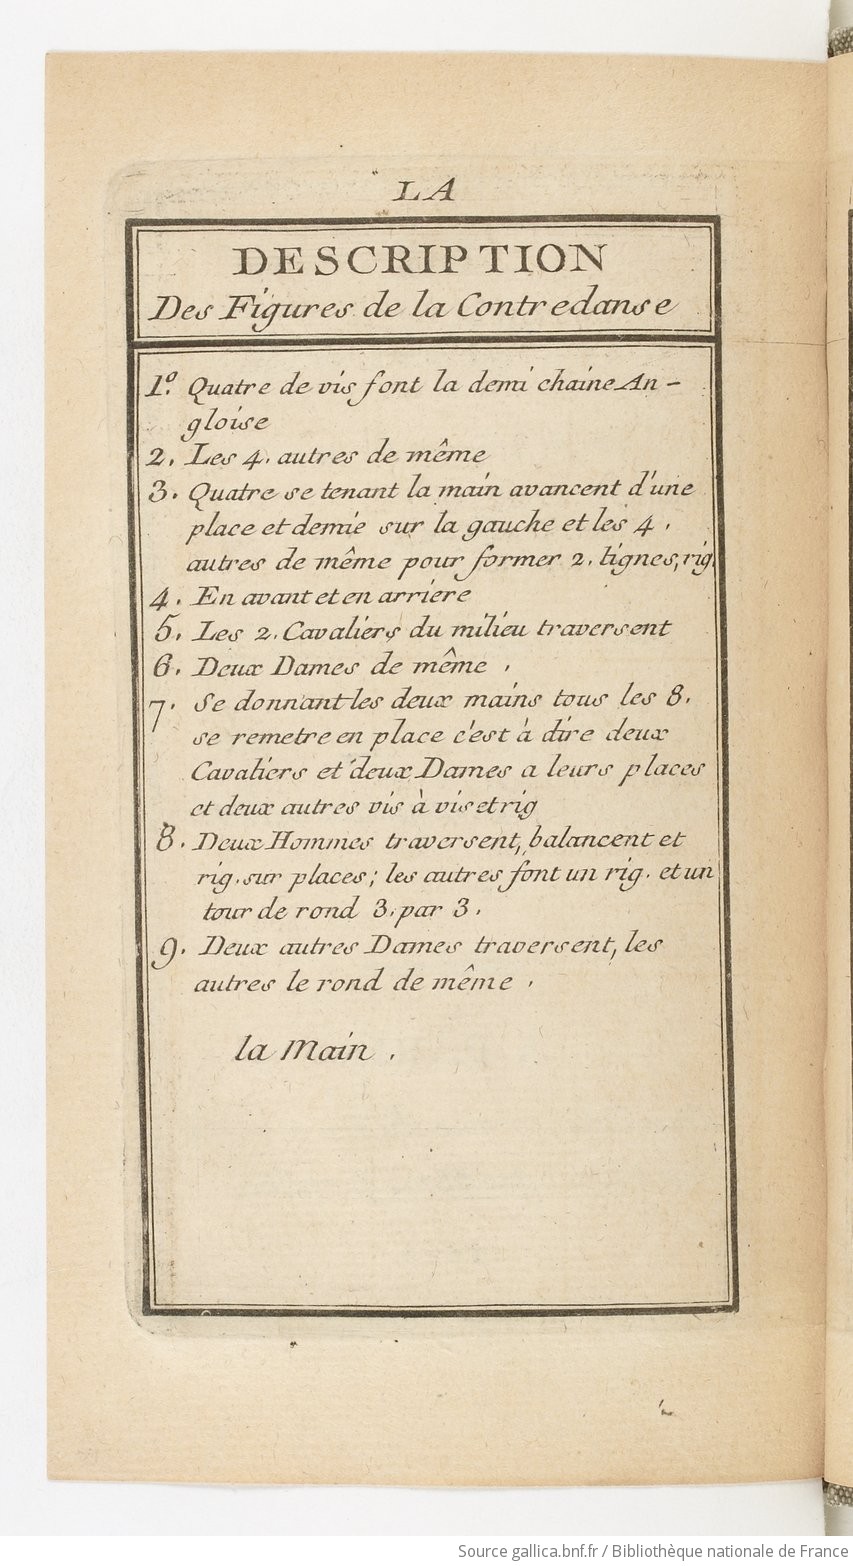 LA
DESCRIPTION
Des Figures de la Contredanse
1.º Quatre de vis font la demi chaine An-
gloise
2. Les 4. autres de même
3. Quatre se tenant la main avancent d'une
place et demie sur la gauche et les 4.
autres de même pour former 2. lignes, rig.
4. En avant et en arriere
5. Les 2. Cavaliers du milieu traversent
6. Deux Dames de même.
7. Se donnant les deux mains tous les 8.
se remetre en place c'est à dire deux
Cavaliers et deux Dames a leurs places
et deux autres vis à vis et rig
8. Deux Hommes traversent, balancent et
rig. sur places; les autres font un rig. et un
tour de rond 3. par 3.
9. Deux autres Dames traversent, les
autres le rond de même.
la Main.
Source gallica.bnf.fr / Bibliothèque nationale de France